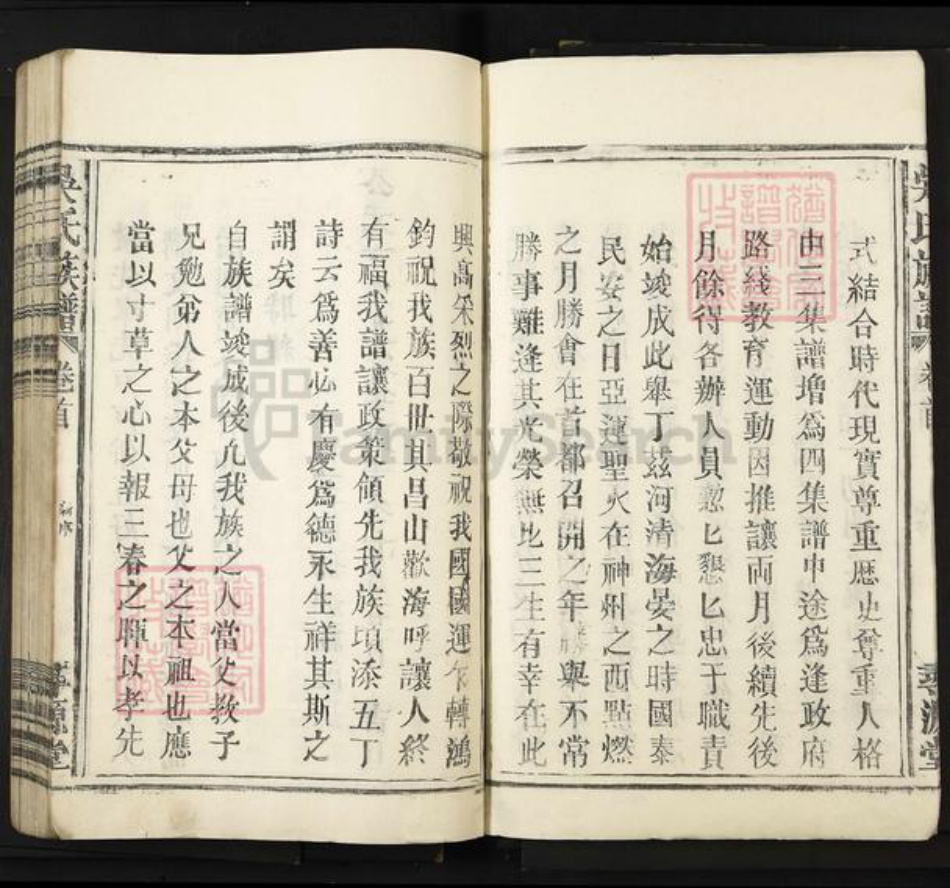 式結合時代現實尊重歷史尊重人格
由三集譜增爲四集譜中途爲逢政府
路綫教育運動因推讓両月後續先後
月餘得各辦人員懃匕懇匕忠于職責
始竣成此舉丁茲河清海晏之時國泰
民安之日亞運聖火在神州之西點燃
之月勝會在首都召開之年勝舉不常
勝事難逢其光榮無比三生有幸在此
興高采烈之際敬祝我國國運乍轉鴻
鈞祝我族百世其昌山歡海呼讓人終
有福我譜讓政策領先我族頃添五丁
詩云爲善必有慶爲德永生祥其斯之
謂矣
自族譜竣成後凢我族之人當父教子
兄勉弟人之本父母也父之本祖也應
當以寸草之心以報三春之暉以孝先
吳氏族譜
卷首
源堂
FamilySearch